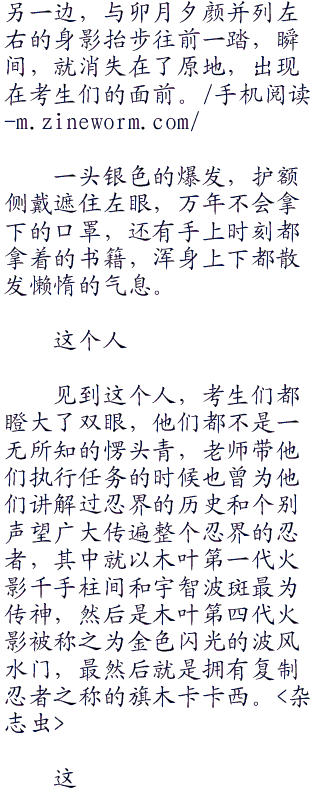 另一边，与卯月夕颜并列左
右的身影抬步往前一踏，瞬
间，就消失在了原地，出现
在考生们的面前。/手机阅读
-m.zineworm.com/
一头银色的爆发，护额
侧戴遮住左眼，万年不会拿
下的口罩，还有手上时刻都
拿着的书籍，浑身上下都散
发懒惰的气息。
这个人
见到这个人，考生们都
瞪大了双眼，他们都不是一
无所知的愣头青，老师带他
们执行任务的时候也曾为他
们讲解过忍界的历史和个别
声望广大传遍整个忍界的忍
者，其中就以木叶第一代火
影千手柱间和宇智波斑最为
传神，然后是木叶第四代火
影被称之为金色闪光的波风
水门，最然后就是拥有复制
忍者之称的旗木卡卡西。<杂
志虫>
这